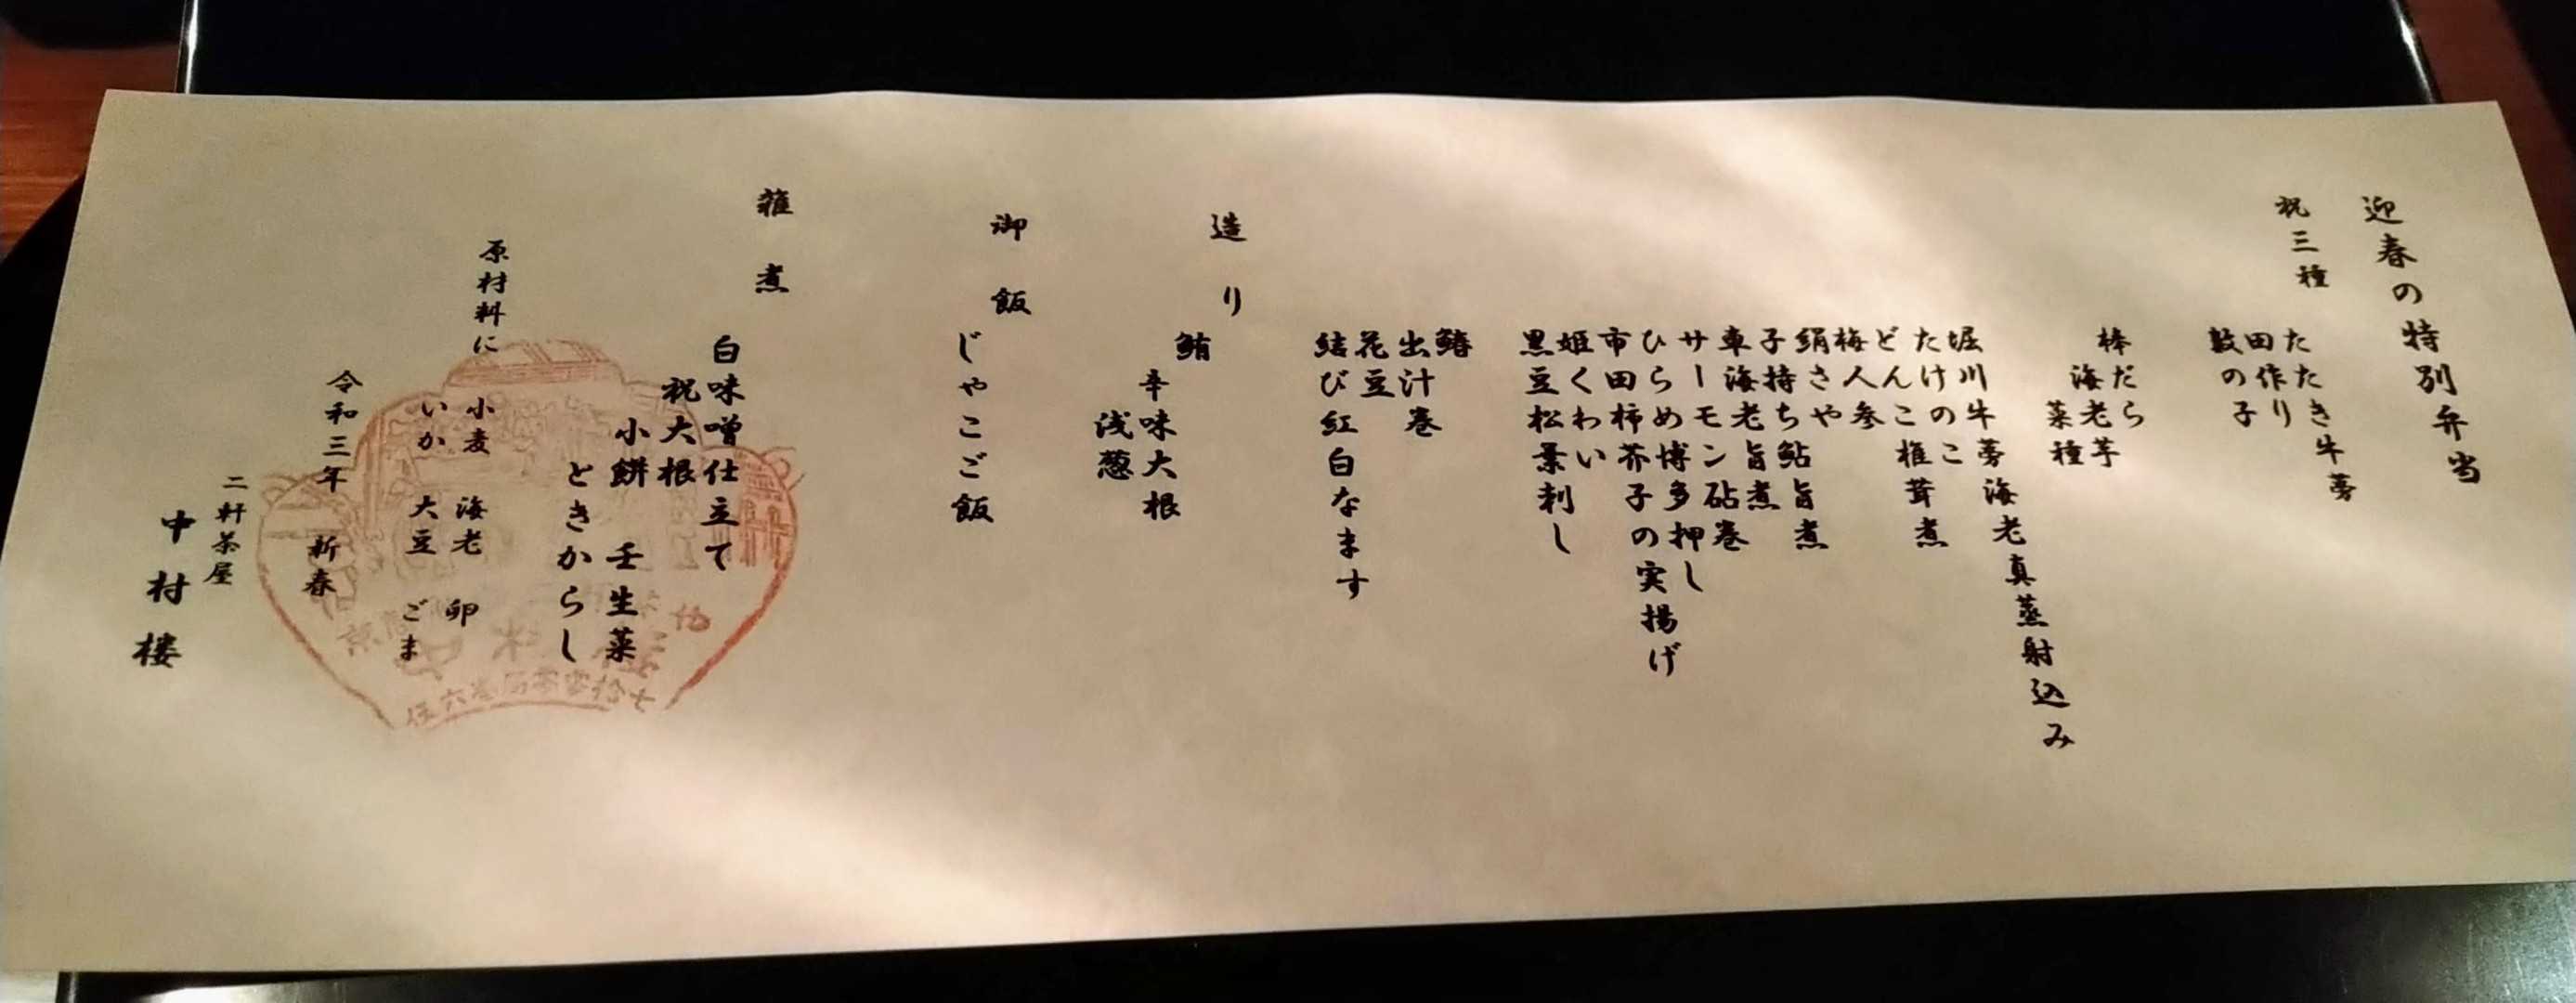 迎春の特別弁当
祝三種
たたき牛蒡
田作り
数の子
棒だら
海老芋
菜種
堀川牛蒡海老真蒸射込み
たけのこ
どんこ椎茸煮
梅人参
絹さや
子持ち鮎旨煮
車海老旨煮
サーモン砧巻
ひらめ博多押し
市田柿芥子の実揚げ
姫くわい
黒豆松葉刺し
鰆
出汁巻
花豆
結び紅白なます
造り
鮪
辛味大根
浅葱
御飯
じゃこご飯
雑煮
白味噌仕立て
祝大根
小餅 壬生菜
ときからし
原材料に
小麦 海老 卵
いか 大豆 ごま
令和三年 新春
二軒茶屋
中村楼